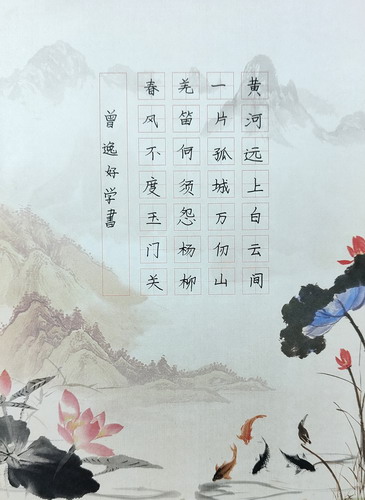 黄河远上白云间
一片孤城万仞山
羌笛何须怨杨柳
春风不度玉门关
曾逸好学書